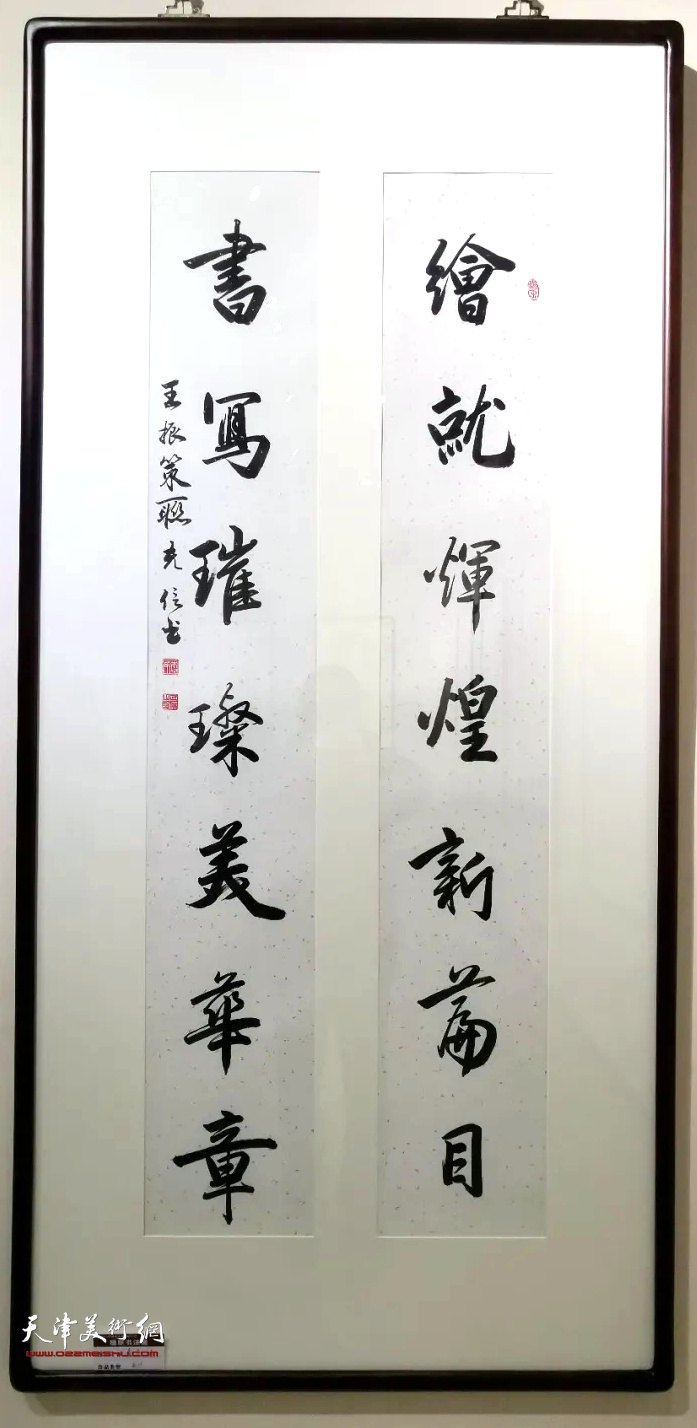 繪就輝煌新篇目
書寫璀璨美華章
王振策聯 克信书
天津美術網
www.022meishu.com